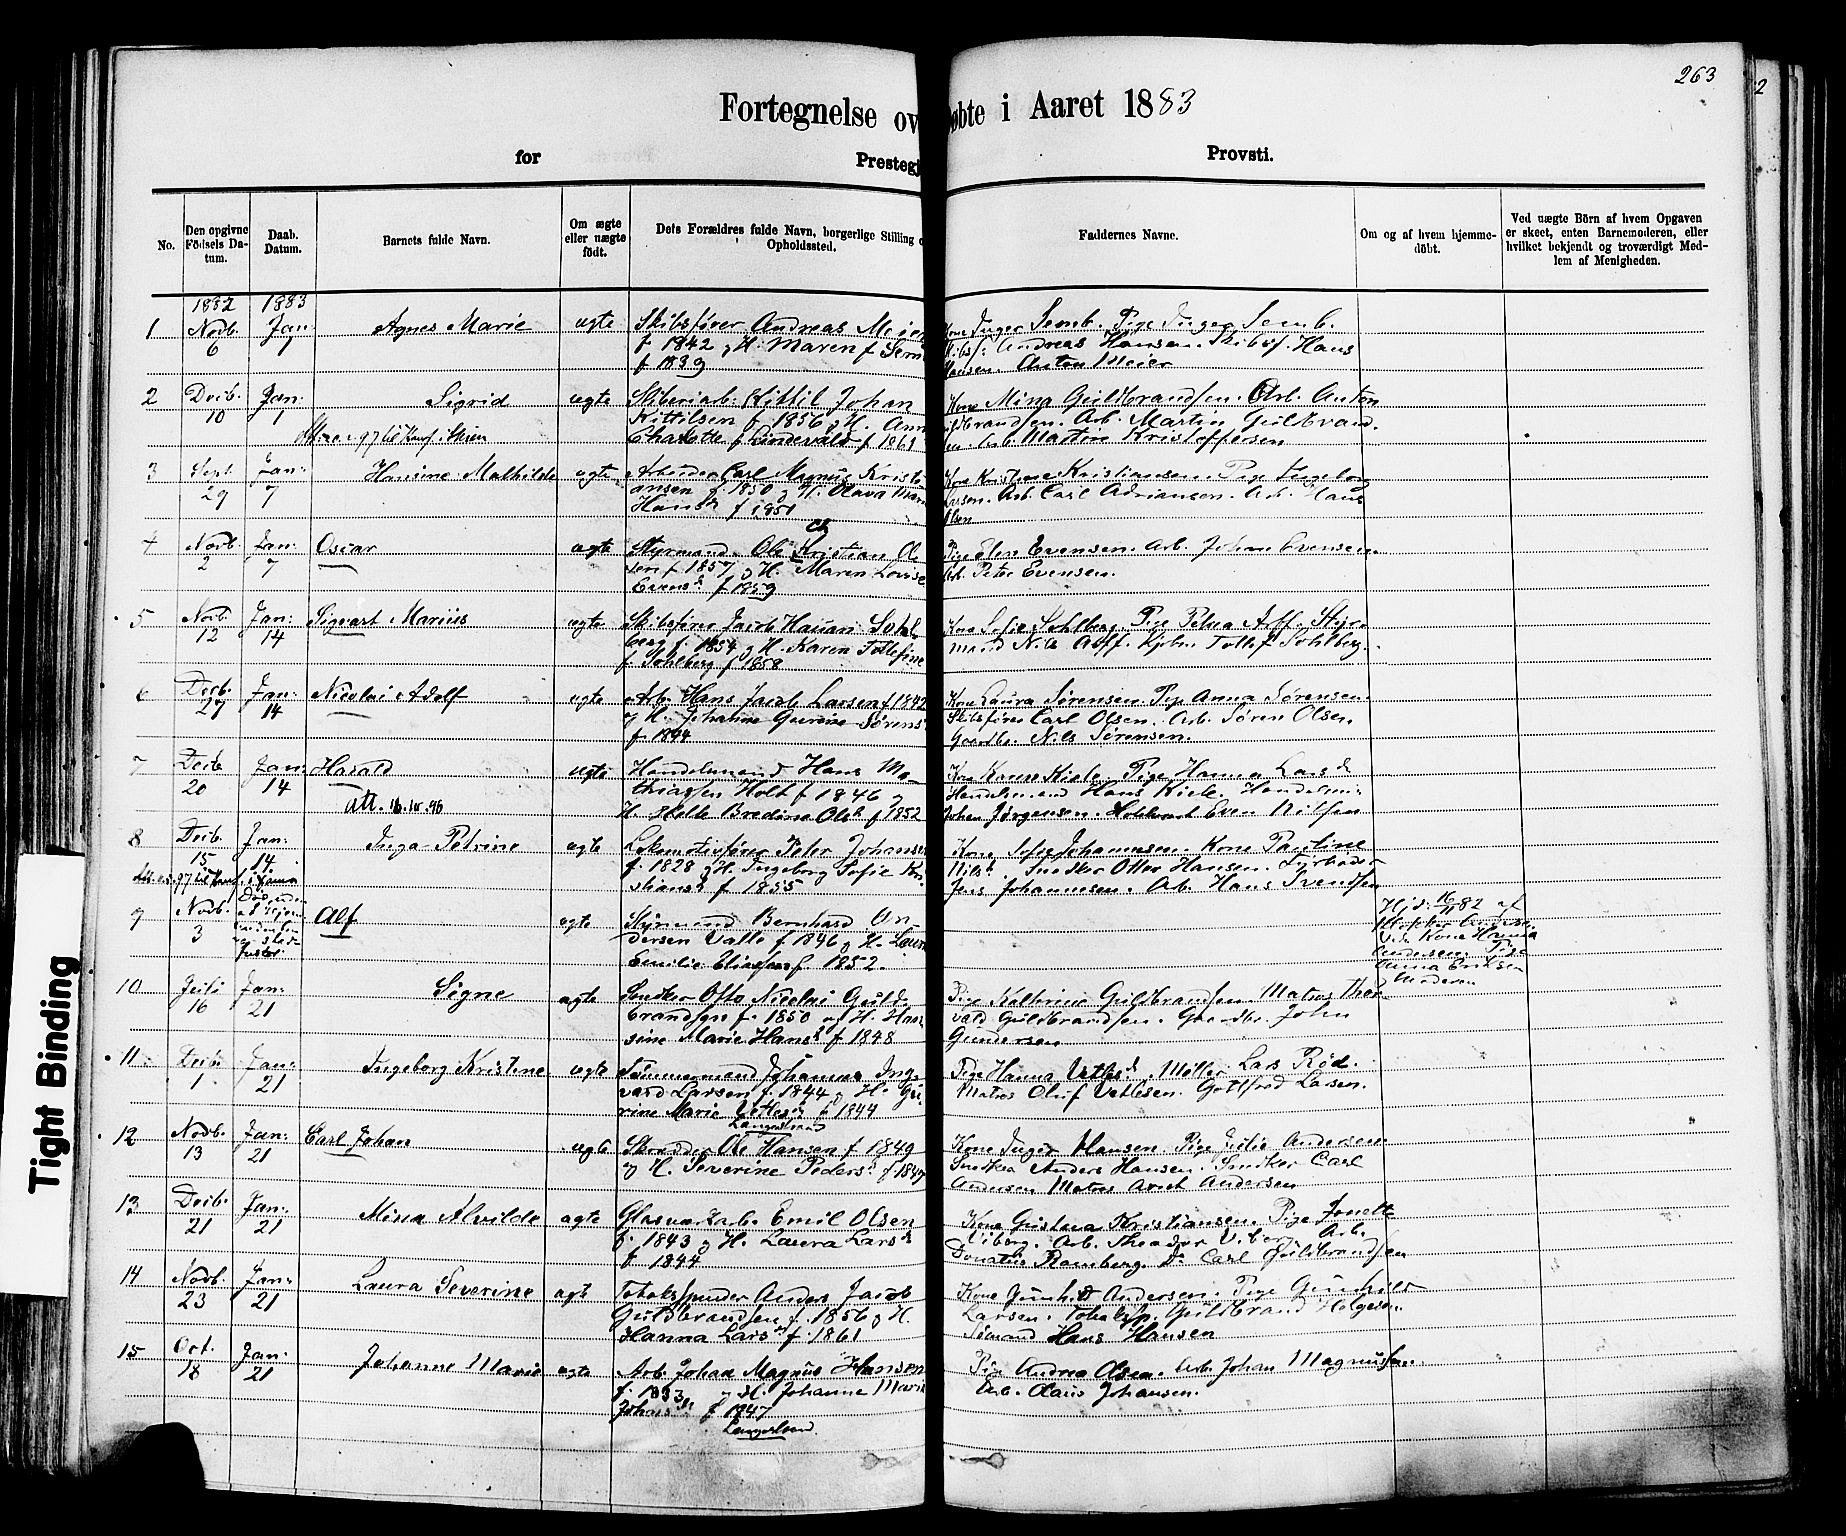 263
Fortegnelse ov øbte i Aaret 1883
for Prestegj Provsti.
No.
Den opgivne Födsels Datum.
Daab. Datum.
Barnets fulde Navn.
Om ægte eller uægte födt.
Dets Forældres fulde Navn, borgerlige Stilling o
Opholdssted.
Faddernes Navne.
Om og af hvem hjemmedöbt.
Ved uægte Börn af hvem Opgaven er skeet, enten Barnemoderen, eller hvilket bekjendt og troværdigt Medlem af Menigheden.
1882 1883
1 Novb. 6 Jan: 7 Agnes Marie ægte
Skibsfører Andreas Meier
f 1842 og H. Maren f Sem
f 1839
Kone Inger Semb. Pige Inger Semb.
Skibsf: Andreas Hansen. Skibsf. Hans
Hansen. Anton Meier
2 Decb. 10 Jan: 1 Sigrid ægte
97 til Konf. i Skien
Skiberiarb: Kittil Johan
Kittilsen f. 1856 og H. Ann
Charlotte f. Lindevald f 1861
Kone Mina Guldbrandsen. Arb. Anton
ldbrandsen. Arb. Martin Guldbrand
sen. Arb. Martin Kristoffersen
3 Sept. 29 Jan: 7 Hansine Mathilde ægte
Arbeider Carl Magnus Kristi
ansen f. 1850 og H. Olava Mar
Hansd. f 1851
Kone Kristine Kristiansen. Pige Ingeborg
Larsen. Arb. Carl Adriansen. Arb. Hans
Olsen
4 Novb. 2 Jan: 7 Oscar ægte
Ch
Styrmand Ole Kristian Ol
sen f 1857 og H. Maren Lovise
Evensd. f 1859
Pige Elen Evensen. Arb. Johan Evensen
Arb. Peter Evensen.
5 Novb. 12 Jan: 14 Sigvart Marius ægte
Skibsfører Jacob Hauan Sohl
berg f. 1854 og H. Karen Tollefine
f. Sohlberg f 1858
Kone Sofie Sohlberg. Pige Petra Aoff. Styr
mand Nils Aoff. Kjøbm Tollef Sohlberg.
6 Decb. 27 Jan: 14 Nicolai Adolf ægte
Arb. Hans Jacob Larsen f 1842
og H. Johanne Gurine Sørens
f. 1844
Kone Laura Sørensen Pige Anna Sørensen
Skibsfører Carl Olsen. Arb. Søren Olsen.
Gaardbr. Nils Sørensen.
7 Decb 20 Jan: 14 Harald ægte
Att. 16.10.96
Handelsmand Hans Ma-
thiassen Holt f 1846 og
H. Helle Bredine Olsd. f 1852
Kone Karen Kiele. Pige Hanna Larsd.
Handelsmand Hans Kiele. Handelsm:
Johan Jørgensen. Even Nilsen
8 Decb. 15 Jan: 14 Inga Petrine ægte
Lokomotivfører Peter Johans
f. 1828 og H. Ingeborg Sofie Kri
stiansd. f 1855
Kone Sofie Johannesen. Kone Pauline
Nilsd. Snedker Otter Hansen. Fyrbøder
Jens Johannesen. Arb. Hans Svendsen
9 Novb. 3 Alf ægte
Styrmand Bernhard An-
dersen Valle f 1846 og H. Laura
Emilie Eliassen f. 1852.
Hjd: 16/11 82 af
Kone Hanna
Andersen. Pige
Anna Eriksen
Moderen
10 16 Jan: 21 Signe ægte
Snedker Otto Nicolai Guld
brandsen f. 1850 og H. Han
sine Marie Hansd. f 1848
Pige Kathrine Guldbrandsen. Matros Thor
vald Guldbrandsen. Gaardbr. John
Gundersen
11 Decb. 1 Jan: 21 Ingeborg Kristine ægte
Tømmermand Johannes Inge
vard Larsen f. 1844 og H. Gu
rine Marie Vetlesd. f 1844
Langesund
Pige Hanna Vetlesd. Møller Lars Rød.
Matros Oluf Vetlesen. Gottfred Larsen.
12 Novb. 13 Jan: 21 Carl Johan ægte
Skrædder Ole Hansen f 1849
og H. Severine Pedersd. f 1849
Kone Inger Hansen. Pige Julie Andersen
Snedker Anders Hansen. Snedker Carl
Andersen Matros Andersen
13 Decb. 21 Jan: 21 Mina Alvilde ægte
Glasværkarb. Emil Olsen
f. 1843 og H. Laura Larsd.
f 1844
Kone Gustava Kristiansen. Pige Jonette
Viborg. Arb. Theodor Viborg. Arb.
Donatus Ramberg. Do Carl Guldbrandsen
14 Novb. 23 Jan: 21 Laura Severine ægte
Tobakspinder Anders Jacob
Guldbrandsen f. 1856 og H.
Hanna Larsd. f. 1861
Kone Gunhild Andersen. Pige Gunhild
Larsen. Tobaksp. Guldbrand Helgesen
Sømand Hans Hansen
15 Oct. 18 Jan: 21 Johanne Marie ægte
Arb. Johan Magnus Hansen
f. 1853 og H. Johanne Marie
Johansd. f 1847
Langesund
Pige Andrea Olsen. Arb. Johan Magnussen
Arb. Claus Johansen.
Tight Binding